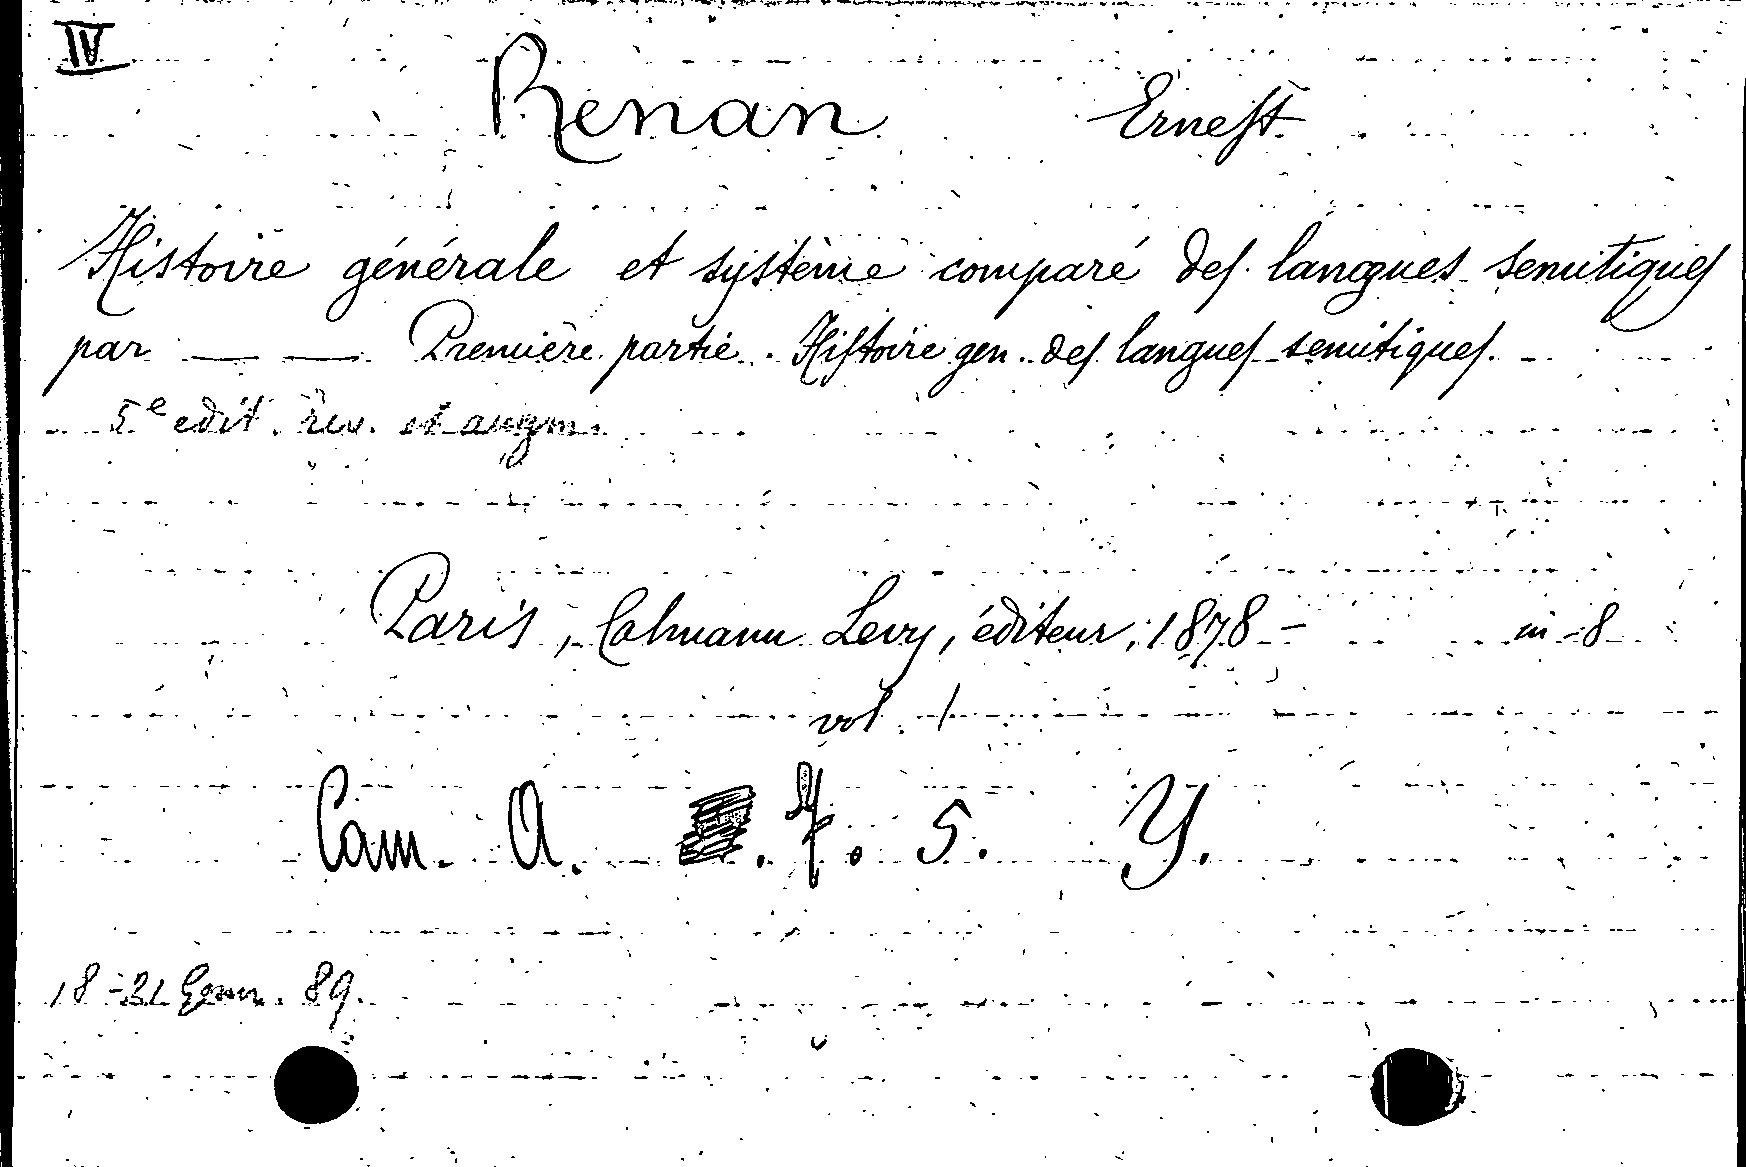 IV
Renan Ernest
Histoire générale et système comparé des langues semitiques
par — — Première partie. Histoire gen. des langues semitiques.
5e edit. rev. et augm.
Paris, Calmann Levy, éditeur, 1878 - in-8
vol. 1
Cam. A. . 5. Y.
18-21 Genn. 89.